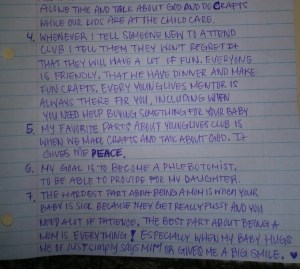 ALONG TIME AND TALK ABOUT GOD AND DO CRAFTS
WHILE OUR KIDS ARE AT THE CHILD CARE.
4. WHENEVER I TELL SOMEONE NEW TO ATTEND
CLUB I TELL THEM THEY WON'T REGRET IT
THAT THEY WILL HAVE A LOT OF FUN. EVERYONE
IS FRIENDLY, THAT WE HAVE DINNER AND MAKE
FUN CRAFTS. EVERY YOUNGLIVES MENTOR IS
ALWAYS THERE FOR YOU, INCLUDING WHEN
YOU NEED HELP BUYING SOMETHING FOR YOUR BABY.
5. MY FAVORITE PARTS ABOUT YOUNGLIVES CLUB IS
WHEN WE MAKE CRAFTS AND TALK ABOUT GOD. IT
GIVES ME PEACE.
6. MY GOAL IS TO BECOME A PHLEBOTOMIST,
TO BE ABLE TO PROVIDE FOR MY DAUGHTER.
7. THE HARDEST PART ABOUT BEING A MOM IS WHEN YOUR
BABY IS SICK BECAUSE THEY GET REALLY FUSSY AND YOU
NEED A LOT OF PATIENCE. THE BEST PART ABOUT BEING A
MOM IS EVERYTHING! ESPECIALLY WHEN MY BABY HUGS
ME OR JUST SIMPLY SAYS "MIM" OR GIVES ME A BIG SMILE. ♥